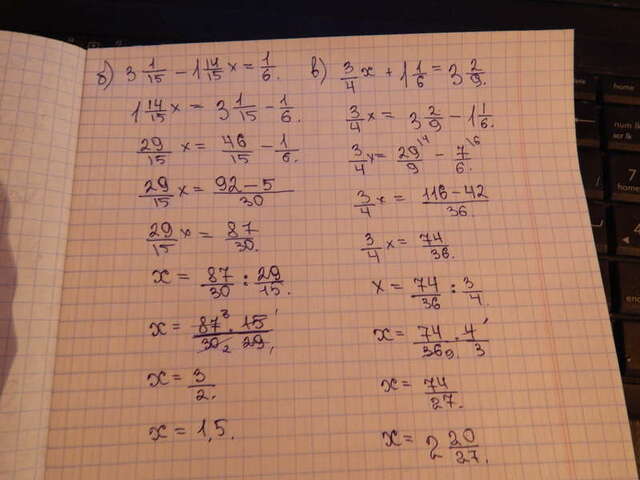 б) 3 1/15 - 1 14/15 x = 1/6.
1 14/15 x = 3 1/15 - 1/6.
29/15 x = 46/15 - 1/6.
29/15 x = 92-5/30
29/15 x = 87/30.
x = 87/30 : 29/15.
x = 87³ · 15¹/30₂ · 29₁
x = 3/2.
x = 1,5.
в) 3/4 x + 1 1/6 = 3 2/9.
3/4 x = 3 2/9 - 1 1/6.
3/4 x = 29\4/9 - 7\6/6.
3/4 x = 116-42/36.
3/4 x = 74/36.
x = 74/36 : 3/4.
x = 74/36₉ · 4¹/3
x = 74/27.
x = 2 20/27.
home
num lk
scr lk
home